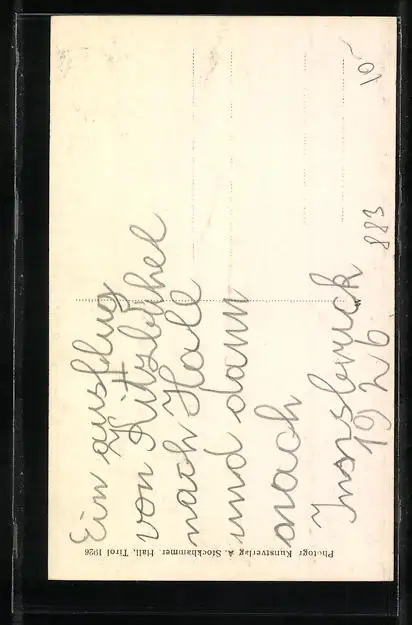 Ein ausflug
von Kitzbühel
nach Hall
und dann
nach
Innsbruck
1926
883
10-
Photogr. Kunstverlag A. Stockhammer Hall, Tirol 1926